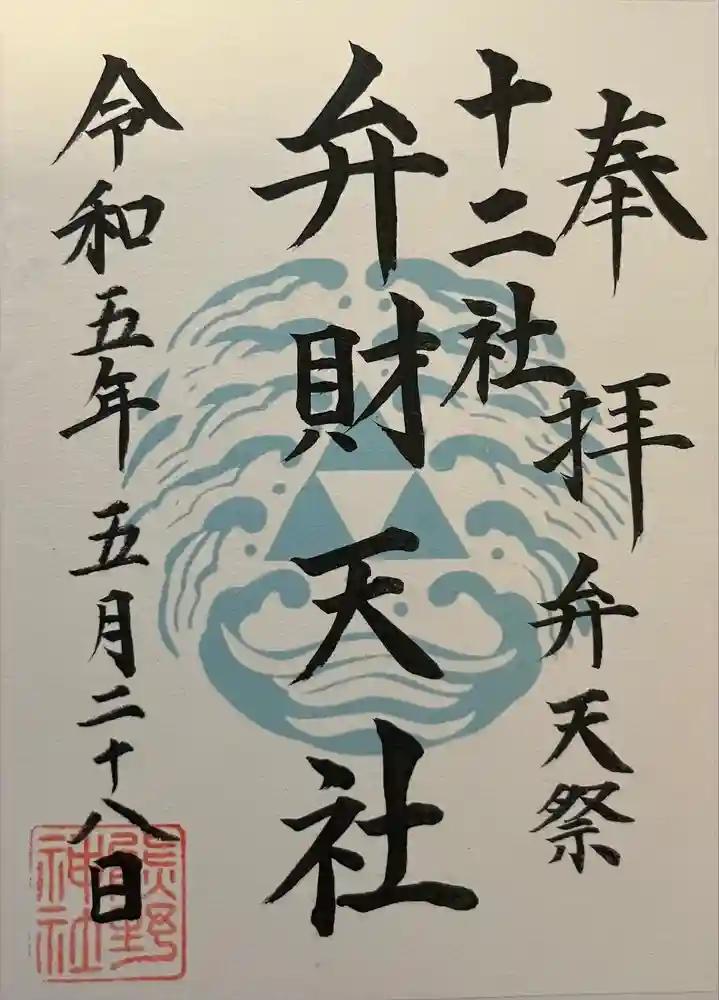 奉拝
弁天祭
十二社
弁財天社
令和五年五月二十八日
熊野
神社